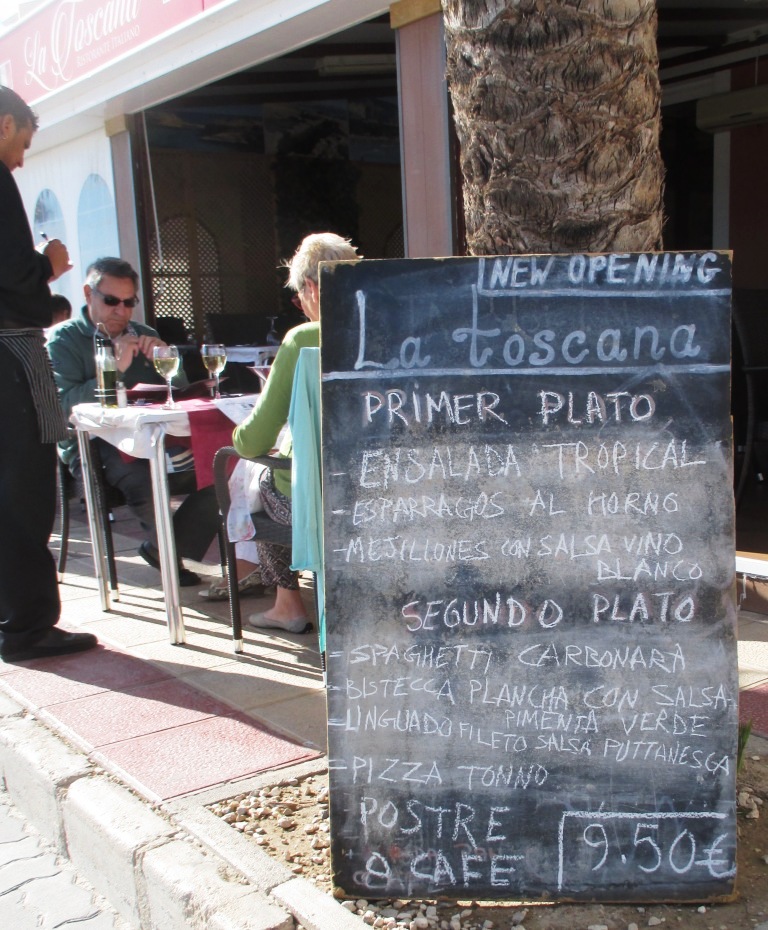 La Toscana
RISTORANTE ITALIANO
NEW OPENING
La toscana
PRIMER PLATO
- ENSALADA TROPICAL
- ESPARRAGOS AL HORNO
- MEJILLONES CON SALSA VINO
BLANCO
SEGUNDO PLATO
- SPAGHETTI CARBONARA
- BISTECCA PLANCHA CON SALSA
PIMENTA VERDE
- LINGUADO FILETO SALSA PUTTANESCA
- PIZZA TONNO
POSTRE
O CAFE
9.50€